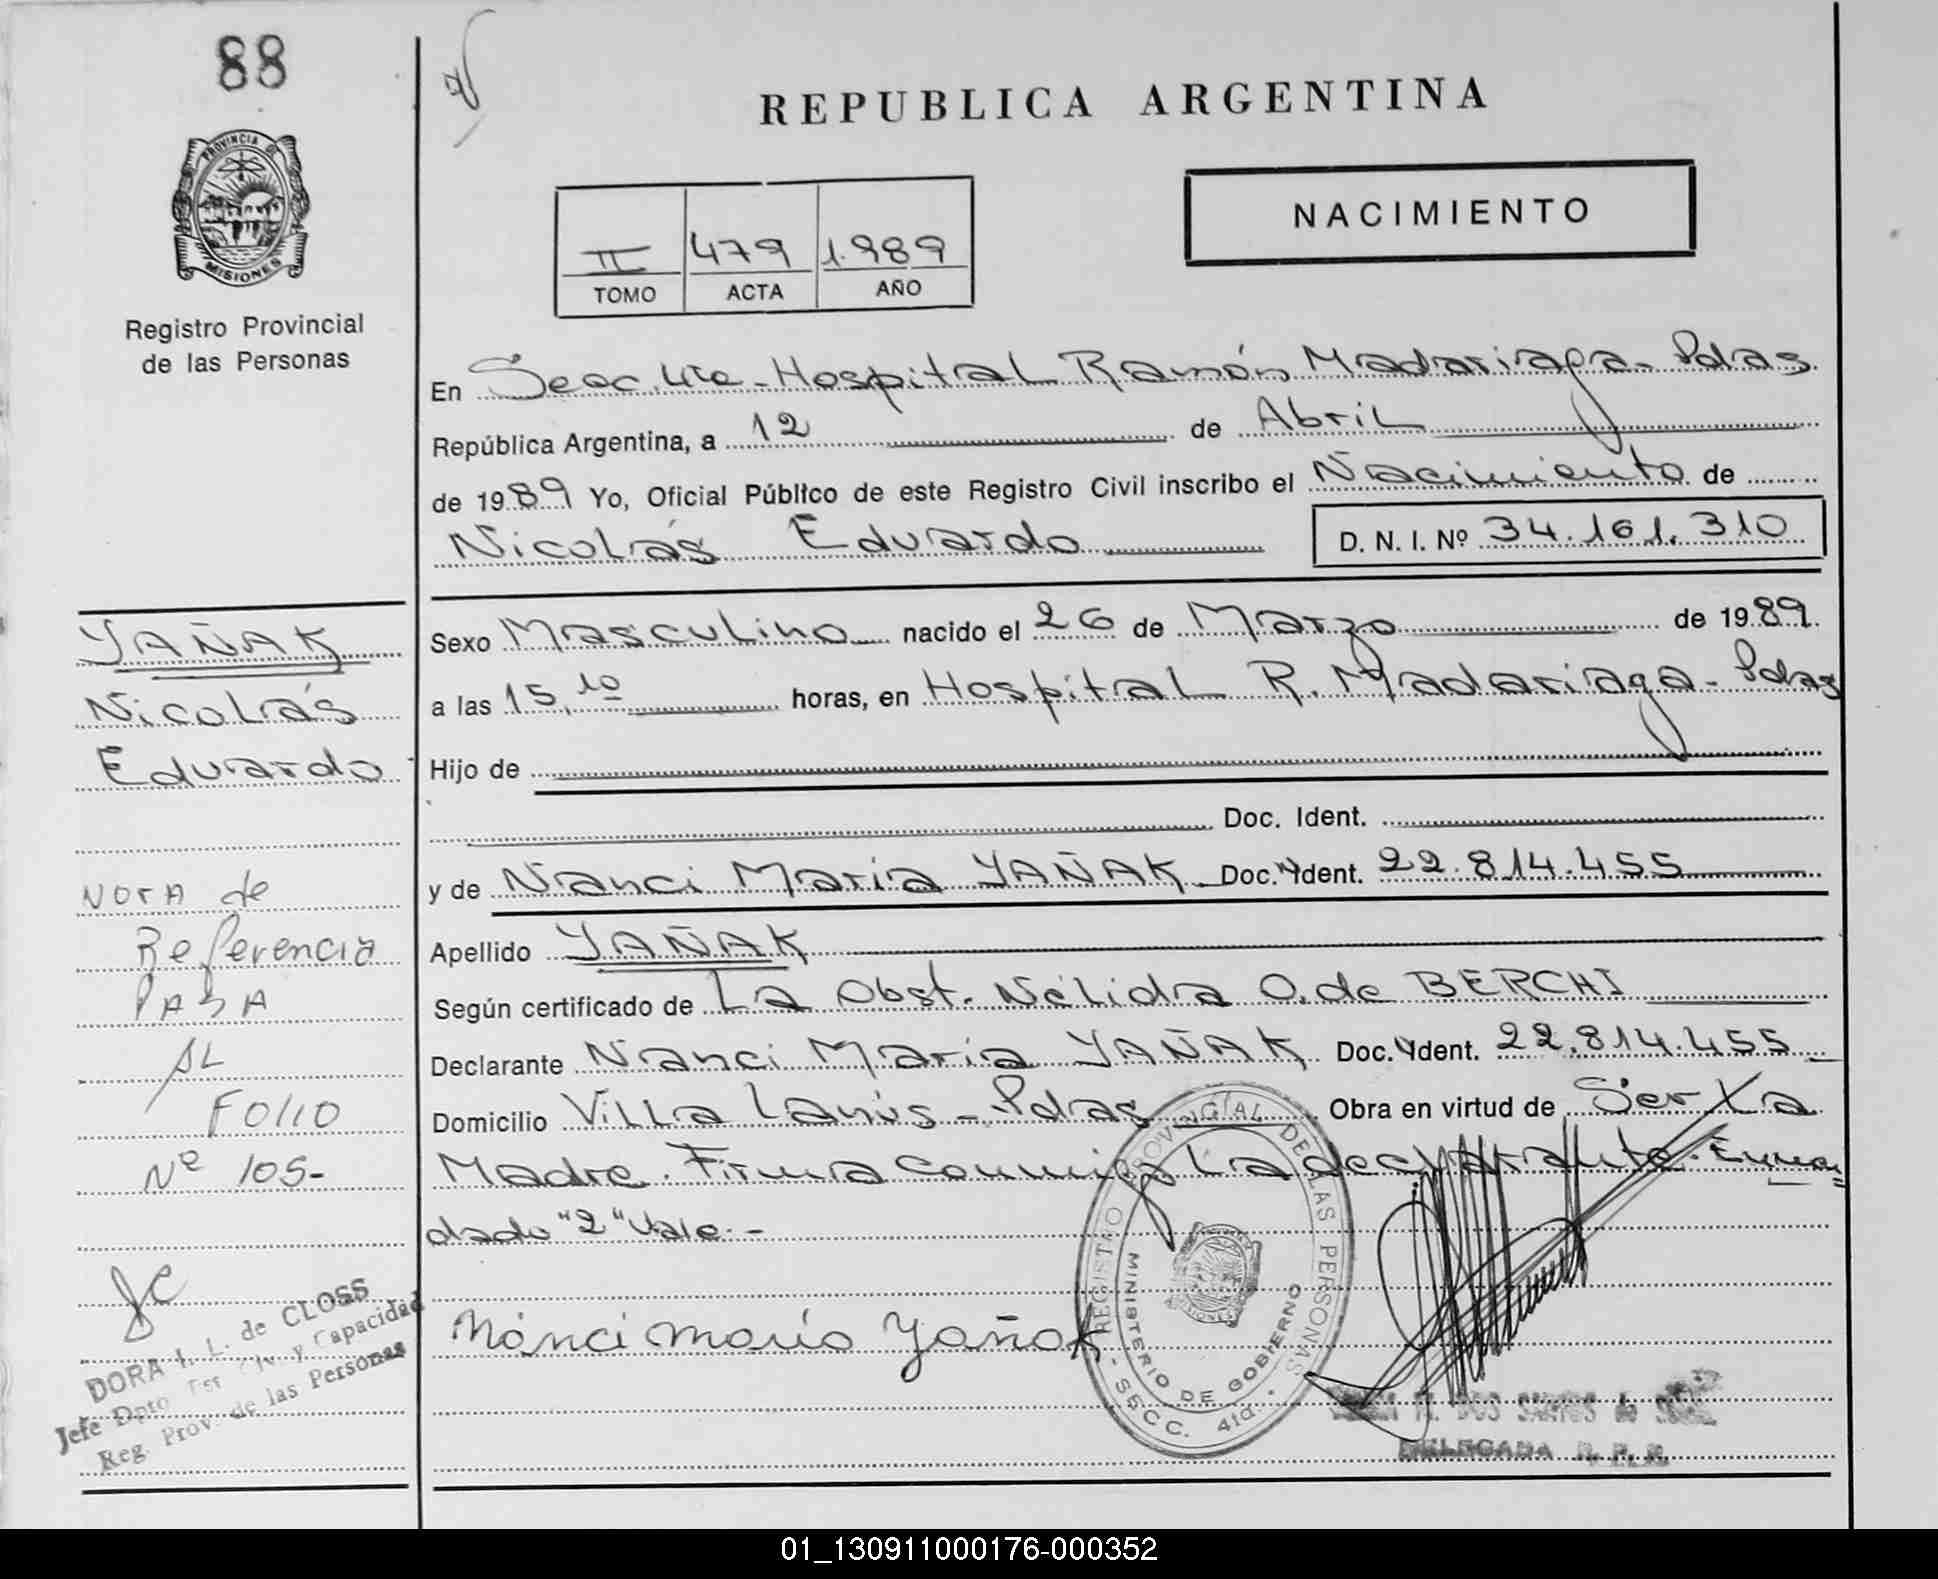 88
PROVINCIA DE
MISIONES
Registro Provincial
de las Personas
REPUBLICA ARGENTINA
NACIMIENTO
II 479 1.989
TOMO ACTA AÑO
En Secc. 4ta - Hospital Ramón Madariaga - Pdas
República Argentina, a 12 de Abril
de 1989 Yo, Oficial Público de este Registro Civil inscribo el Nacimiento de
Nicolás Eduardo D. N. I. Nº 34.161.310
Sexo Masculino nacido el 26 de Marzo de 1989.
a las 15,10 horas, en Hospital R. Madariaga - Pdas
Hijo de
Doc. Ident.
y de Nanci María YAÑAK Doc. Ident. 22.814.455
Apellido YAÑAK
Según certificado de La Obst. Nélida O. de BERCHI
Declarante Nanci María YAÑAK Doc. Ident. 22.814.455
Domicilio Villa Lanús - Pdas Obra en virtud de Ser La
Madre. Firma conmigo La declarante. Enmen
dado "2" Vale. -
Nanci María Yañak
REGISTRO PROVINCIAL DE LAS PERSONAS
MINISTERIO DE GOBIERNO
- SECC. 4ta. -
DOS SANTOS de
DELEGADA R. P. P.
YAÑAK
Nicolás
Eduardo
NOTA de
Referencia
PASA
AL
FOLIO
Nº 105-
DORA I. L. de CLOSS
Jefe Dpto y Capacidad
Reg. Prov. de las Personas
01_130911000176-000352